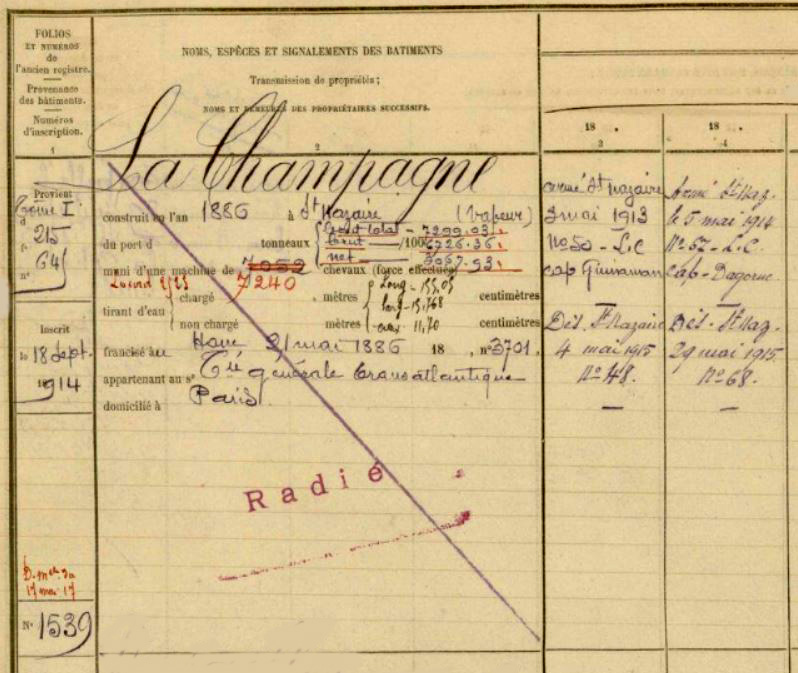 FOLIOS
ET NUMÉROS
de
l'ancien registre.
Provenance
des bâtiments.
Numéros
d'inscription.
1
NOMS, ESPÈCES ET SIGNALEMENTS DES BATIMENTS
Transmission de propriétés;
NOMS ET DEMEURES DES PROPRIÉTAIRES SUCCESSIFS.
2
18
3
18
4
La Champagne
Provient
d Tome I
f° 215
n° 64
construit en l'an 1886 à St Nazaire (Vapeur)
du port d tonneaux /100
brut total - 7299.03
brut - 6726.36
net - 3067.93
muni d'une machine de 7052 chevaux (force effective)
7240
tirant d'eau
chargé mètres centimètres
non chargé mètres centimètres
Long - 155,05
larg - 15,768
creux - 11,70
Inscrit
le 18 Sept.
1914
francisé au Havre 21 mai 1886 18 , n° 3701.
appartenant au sr Cie générale transatlantique
domicilié à Paris
Radié
17 mai 17
N° 1539
armé St Nazaire
3 mai 1913
N° 50 - L.C
cap
Dés. St Nazaire
4 mai 1915
N° 48.
—
Armé St Naz.
le 5 mai 1914
N° 67 - L.C.
cap - Dagorne
Dés. St Naz.
29 mai 1915.
N° 68.
—